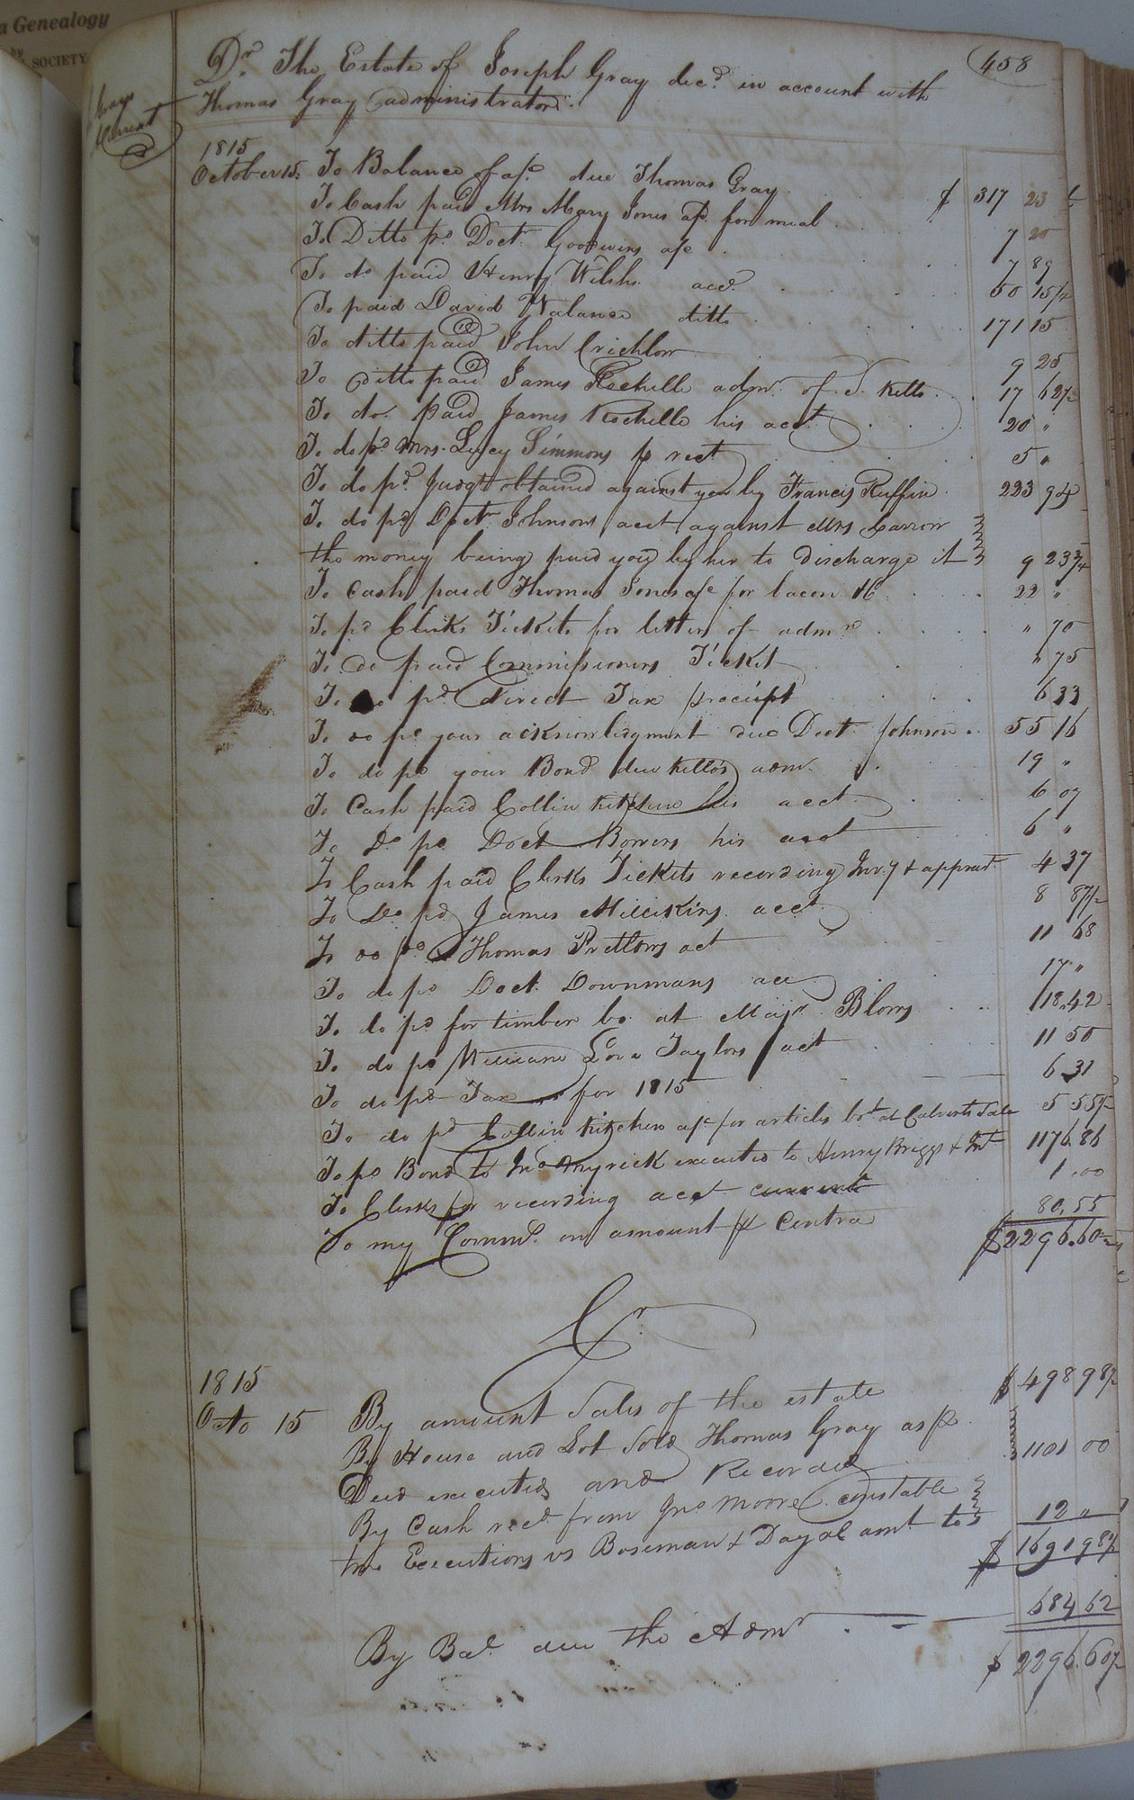 a Genealogy
by
SOCIETY
458
Dr. The Estate of Joseph Gray decd. in account with
Thomas Gray administrator.
Grays
Account
1815
October 15. To Balance of a/c due Thomas Gray $ 317 23
To Cash paid Mrs Mary Jones a/c for meal 7 20
To Ditto pd Doct. Goodwins a/c 7 89
To do paid Henry Welshs accd. 60 15 1/2
To paid David Walance ditto 171 15
To ditto paid John Crichlow 9 25
To ditto paid James Rochelle admr. of S. Kello 17 62 1/2
To do. paid James Rochelle his acct 20 "
To do pd Mrs. Lucy Simmons p rect 5 "
To do pd. Judgt obtained against you by Francis Ruffin 223 94
To do pd Doctr. Johnsons acct against Mrs Carrow
the money being paid you by her to discharge it 9 23 3/4
To Cash paid Thomas Jones a/c for bacon 22 "
To pd Clerks Tickets for letters of admn " 70
To do paid Commissioners Ticket " 75
To do pd direct Tax p receipt 6 33
To do pd your acknowledgment due Doct. Johnson 55 16
To do pd your Bond due Kello's admr. 19 "
To Cash paid Collin Kitchen his acct. 6 07
To Do pd Doct Bowers his acct 6 "
To Cash paid Clerks Tickets recording Invy & apprat 4 37
To Do pd James Millikins acct 8 87 1/2
To do pd Thomas Pretlows act 11 68
To do pd Doct. Downmans acc 17 "
To do pd for timber bo. at Majr. Blows 118.42
To do pd William Love Taylors act 11 50
To do pd Tax for 1815 6 31
To do pd Collin Kitchen a/c for articles bot. at Calverts Sale 5 55 1/2
To pd Bond to Jno Myrick executed to Henry Briggs & Int 1176.86
To Clerks for recording acct current 1.00
To my Comms. on amount p Contra 80.55
$2296.60 1/2
Cr.
1815 $ 498 98 1/2
Octo 15 By amount Sales of the estate
By House and Lot Sold Thomas Gray as p
Deed executed and Recorded 1101 00
By Cash recd. from Jno Moore constable
two Executions vs Boseman & Day al amt. to 12 "
$ 1691 98 1/2
684 62
By Bal. due the Admr
$ 2296.60 1/2